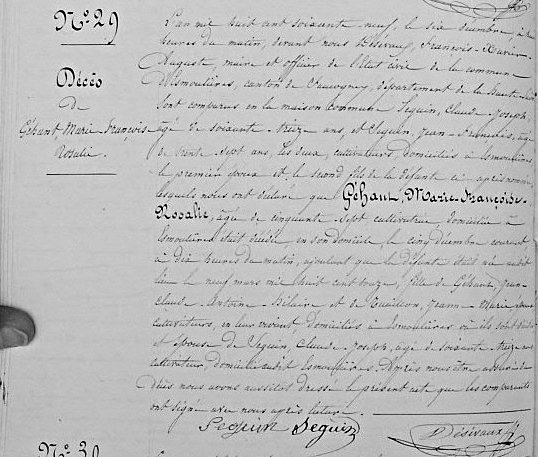 N°. 29
Décès
de
Géhant Marie Françoise
Rosalie.
L'an mil huit cent soixante neuf, le six décembre, à
heures du matin, devant nous Désiravaux, François-Xavier
Auguste, maire et officier de l'État civil de la commune
d'Esmoulières, canton de Faucogney, département de la Haute
sont comparus en la maison commune Seguin, Claude-Joseph,
âgé de soixante-treize ans, et Seguin, Jean-François, âgé
de trente-sept ans, les deux, cultivateurs, domiciliés à Esmoulières
le premier époux et le second fils de la défunte ci-après nommée
lesquels nous ont déclaré que Géhant, Marie-Françoise-
Rosalie, âgée de cinquante-sept cultivatrice domiciliée à
Esmoulières était décédée, en son domicile le cinq décembre courant
à dix heures du matin, ajoutant que la défunte était née audit
lieu le neuf mars mil huit cent douze, fille de Géhant, Jean-
Claude Antoine Hilaire et de Jeanne-Marie
cultivateurs, en leur vivant domiciliés à Esmoulières où ils sont
et épouse de Seguin, Claude-Joseph, âgé de soixante-treize ans
cultivateur, domicilié audit Esmoulières. Après nous être assuré du
décès nous avons aussitôt dressé le présent acte que les comparants
ont signé avec nous après lecture.
Seguin Seguin
N°. 30